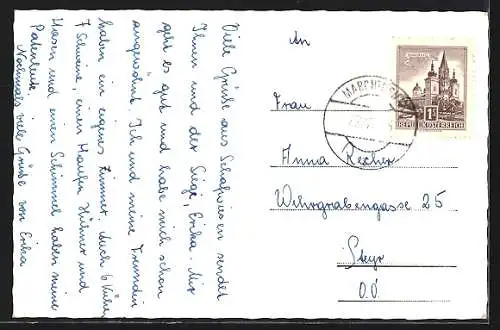 Viele Grüße aus Scharwiesen sendet
Ihnen und der Siegi, Erika. Mir
geht es gut und habe mich schon
angewöhnt. Ich und meine Freundin
haben ein eigenes Zimmer. Auch 6 Kühe,
7 Schweine, einen Haufen Hühner und
Hasen und einen Schimmel haben meine
Patenleute.
Nochmals viele Grüße von Erika
An
Frau
Anna Recher
Wehrgrabengasse 25
Steyr
O.Ö.
1S
REPUBLIK ÖSTERREICH